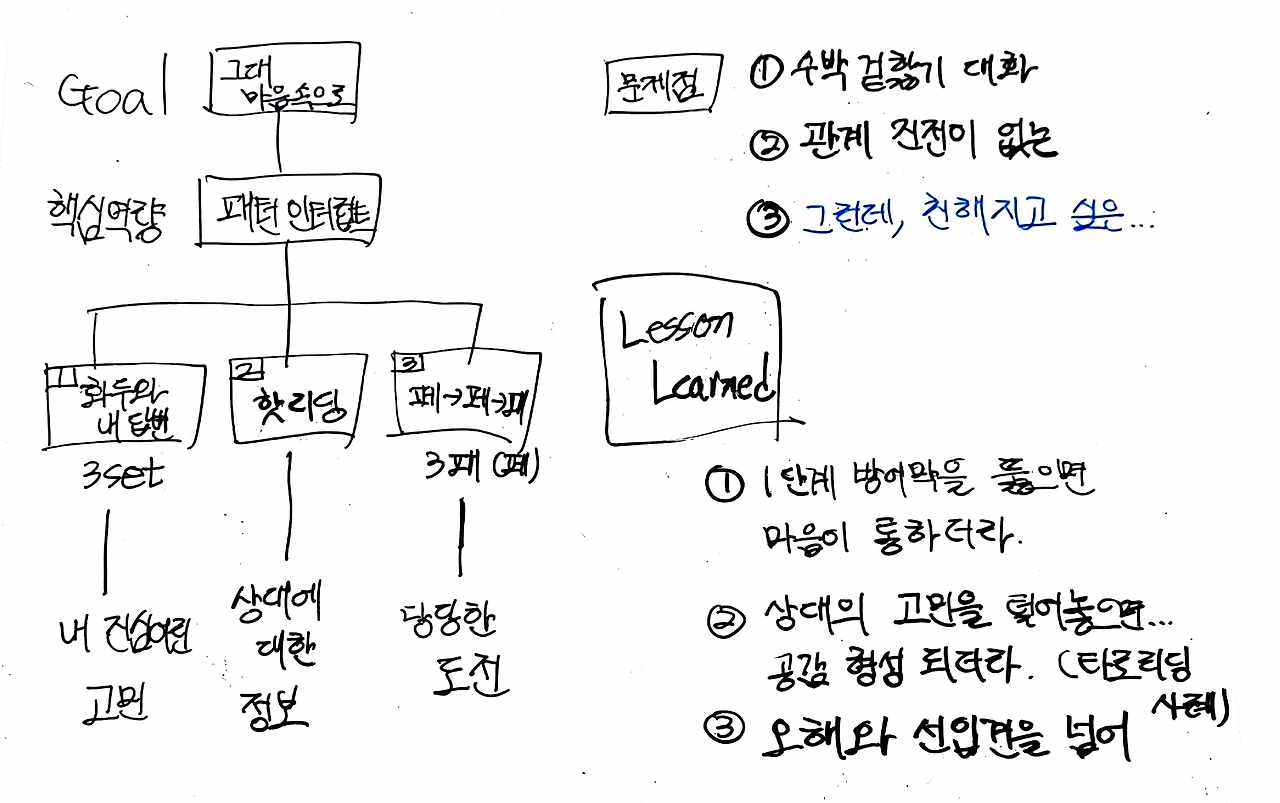 Goal
그대
마음속으로
핵심역량
패턴 인터럽트
1
화두와
내 답변
3set
내 진심어린
고민
2
핫리딩
상대에
대한
정보
3
폐→폐→패
3패 (폐)
당당한
도전
문제점
① 수박 겉핥기 대화
② 관계 진전이 없는
③ 그런데, 친해지고 싶은...
Lesson
Learned
① 1단계 방어막을 뚫으면
마음이 통하더라.
② 상대의 고민을 털어놓으면...
공감 형성 되더라. (타로리딩
사례)
③ 오해와 선입견을 넘어